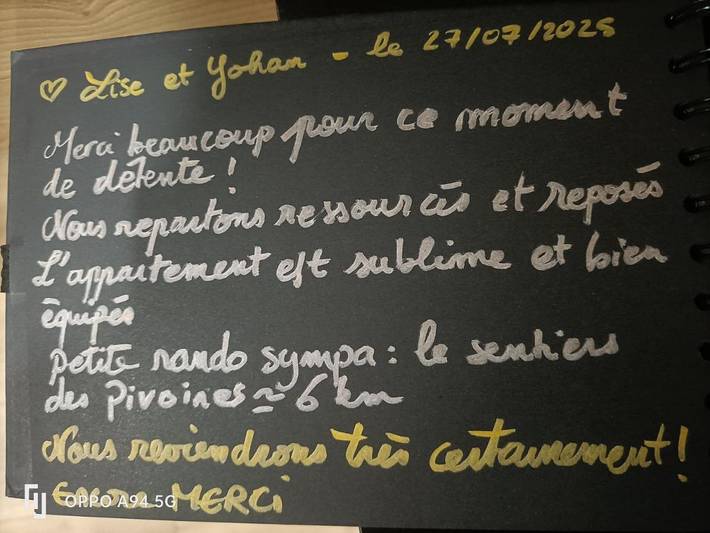 ♡ Lise et Yohan - le 27/07/2025
Merci beaucoup pour ce moment
de détente !
Nous repartons ressourcés et reposés
L'appartement est sublime et bien
équipés
petite rando sympa : le sentiers
des pivoines ≃ 6 km
Nous reviendrons très certainement !
Encore MERCI
OPPO A94 5G